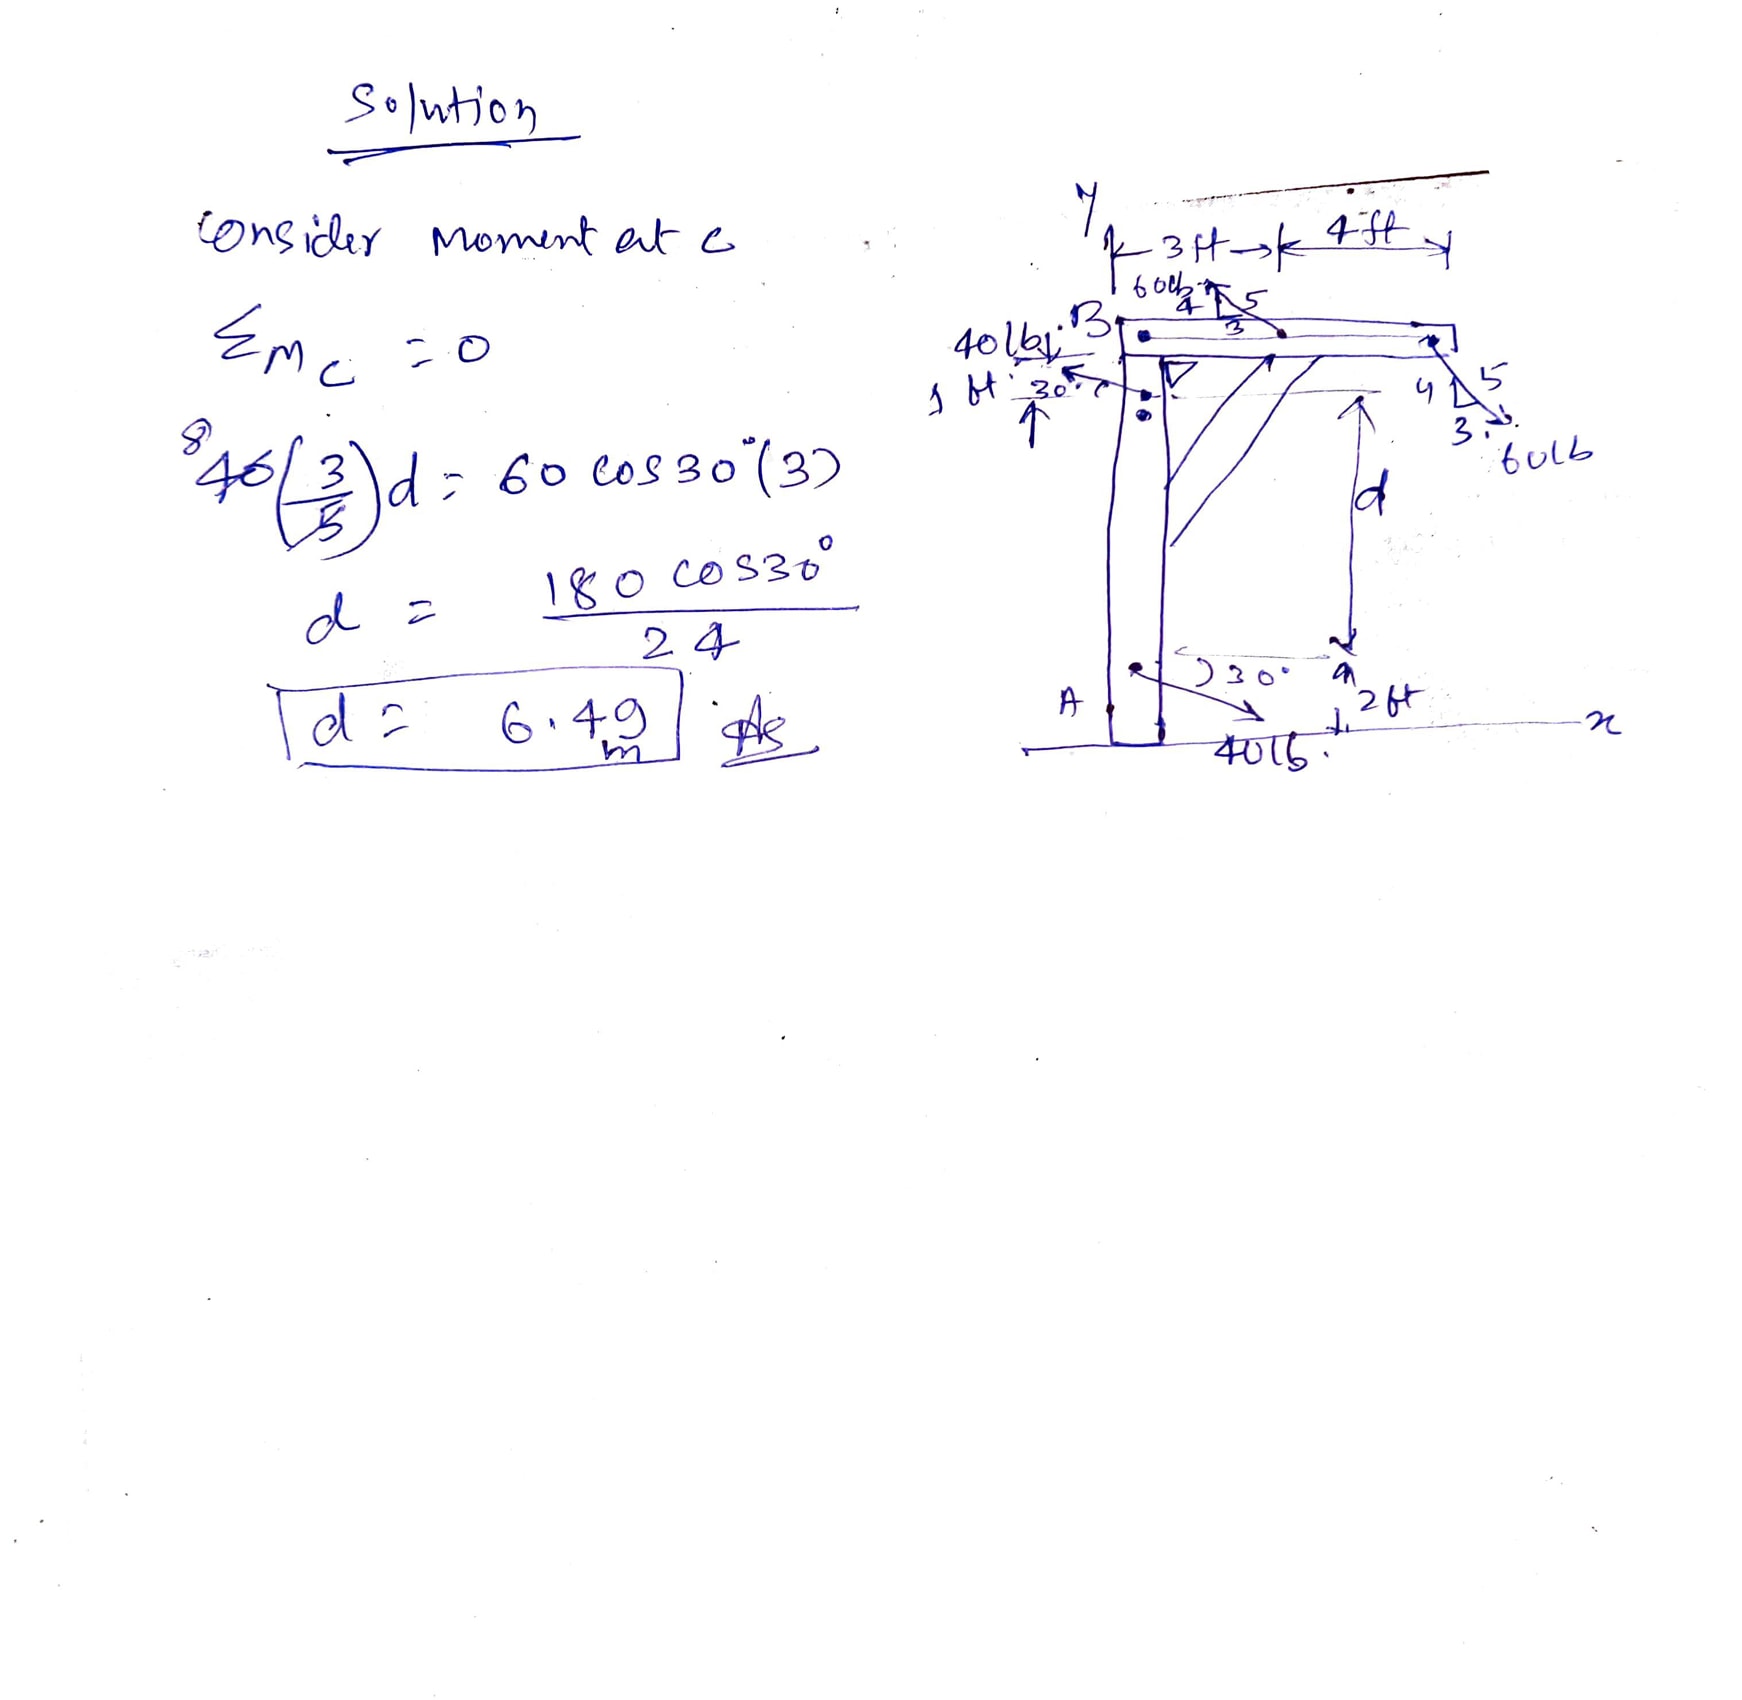 Solution
Consider Moment at C
ΣM_C = 0
8
40(3/5)d = 60 cos30°(3)
d = 180 cos30° / 24
d = 6.49 m Ans
y
3 ft 4 ft
60lb 4 5 3
40lb B
1 ft 30°
4 5 3
60lb
d
30°
A 2ft
x
40lb.